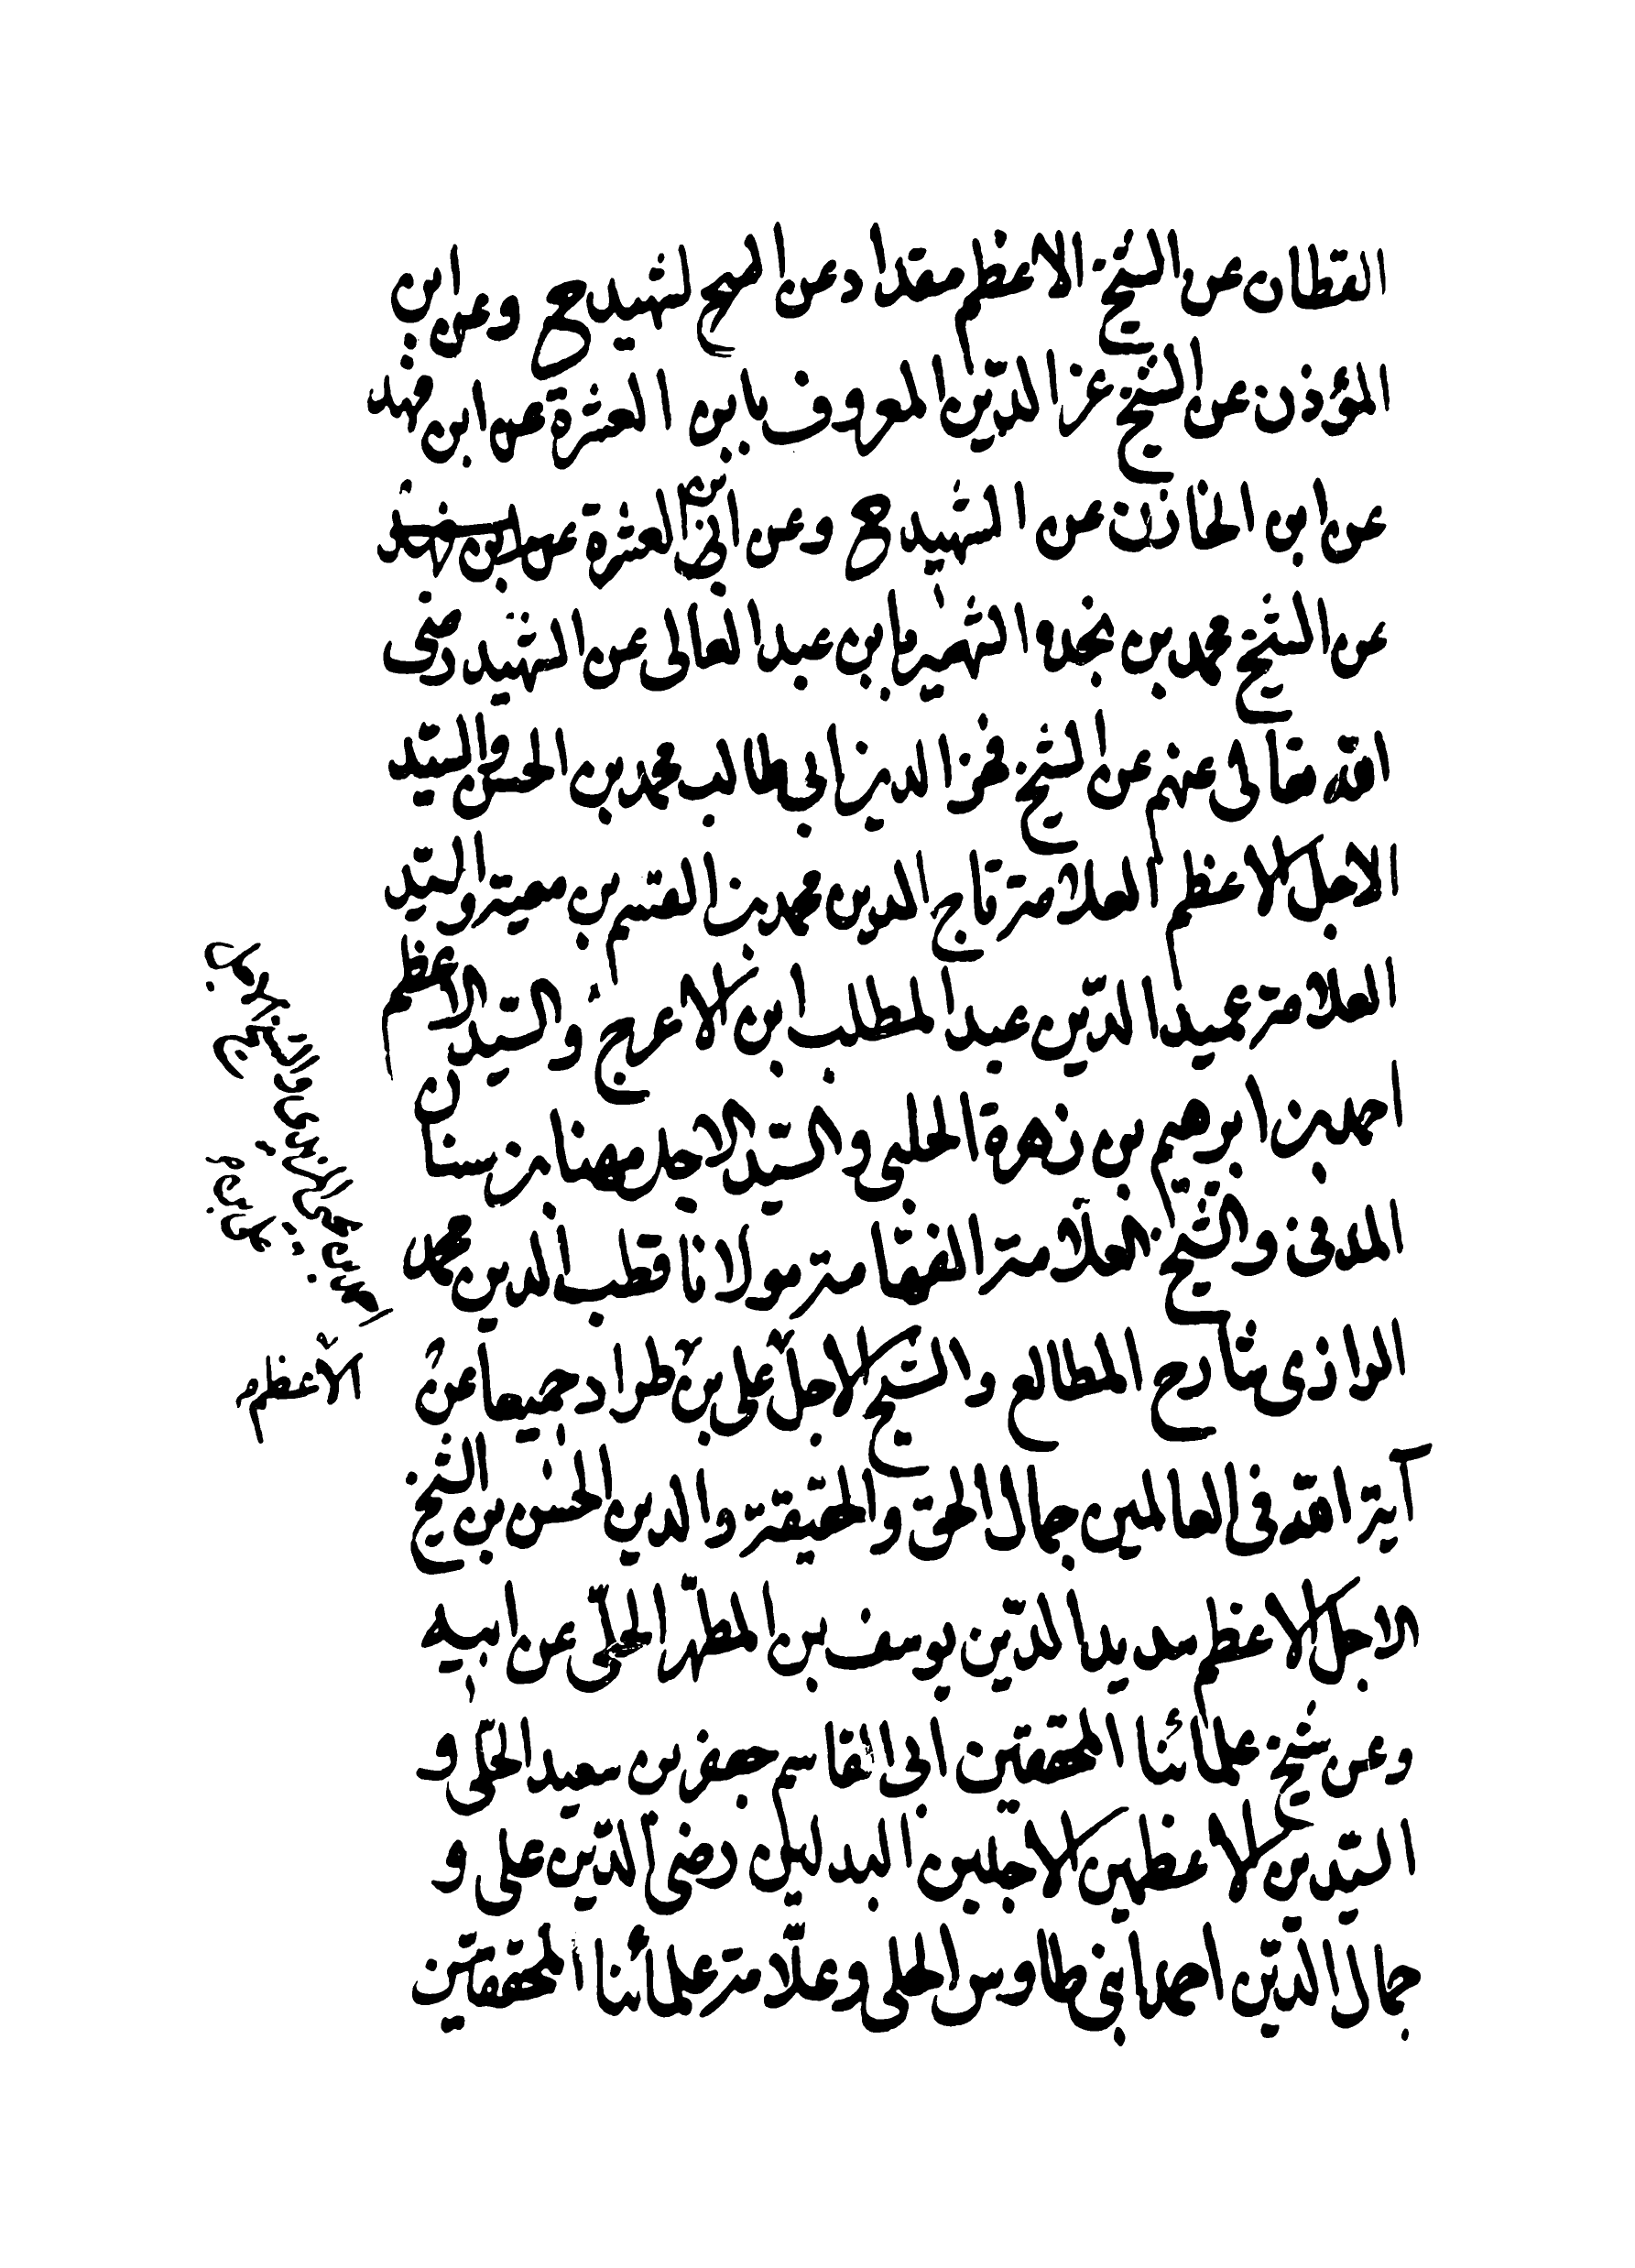 القطان عن الشيخ الاعظم مقداد عن الشيخ الشهيد ح وعن ابن
المؤذن عن الشيخ عز الدّين المعروف بابن العشرة عن ابن فهد
عن ابن الخازن عن الشهيد ح وعن ابن العشرة
عن الشيخ محمد بن نجده الشهير بابن عبد العالى عن الشهيد رضى
الله تعالى عنهم عن الشيخ فخر الدين ابي طالب محمد بن الحسن والسيّد
الاجل الاعظم العلامة تاج الدين محمد بن القسم بن معية والسيّد
العلامة عميد الدّين عبد المطلب ابن الاعرج والسّيد الاعظم
احمد بن ابرهيم بن زهرة الحلبى والسيّد الاجل مهنا بن سنان
المدنى والشيخ العلّامة الفهّامة مولانا قطب الدين محمد
الرازى شارح المطالع والشيخ الاجل على بن طراد جميعا عن
آية الله فى العالمين جمال الحق والحقيقة والدين الحسن بن الشيخ
الاجل الاعظم سديد الدّين يوسف بن المطهّر الحلّى عن ابيه
وعن شيخ علمائنا المحققين ابى القاسم جعفر بن سعيد الحلّى و
السّيدين الاعظمين الاجلين البدلين رضى الدّين على و
جمال الدّين احمد ابنى طاوس الحلى وعلّامة علمائنا المحققين
الأعظم